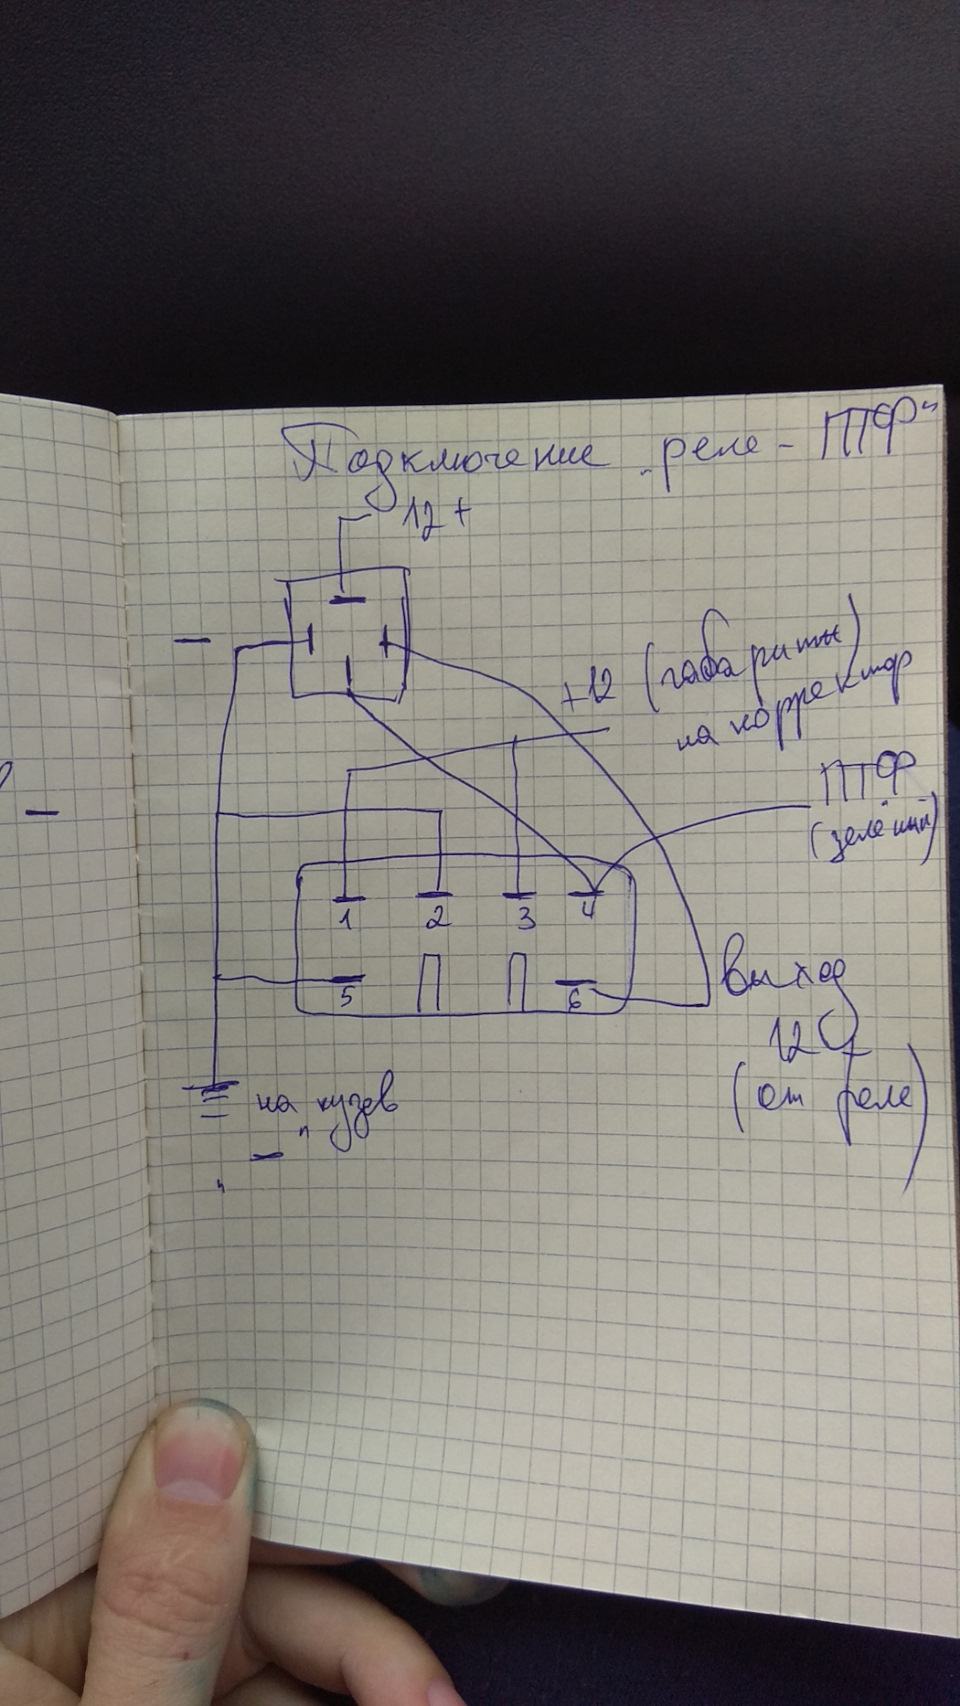 Подключение "реле - ПТФ"
12 +
-
+12 (габариты)
на корректор
ПТФ
(зелёный)
-
1 2 3 4
5 6
Выход
12
(от реле)
на кузов
"-"